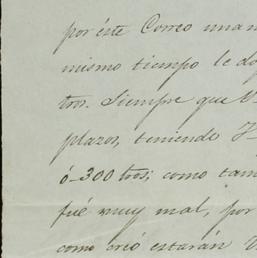 por éste Correo una
mismo tiempo le do
tros. Siempre que V
plazos, teniendo
ó 300 tros; como tam
fué muy mal, por
como creó estarán V